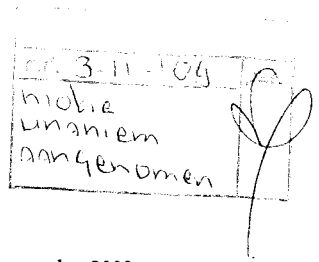 3-11-'04
motie
unaniem
aangenomen